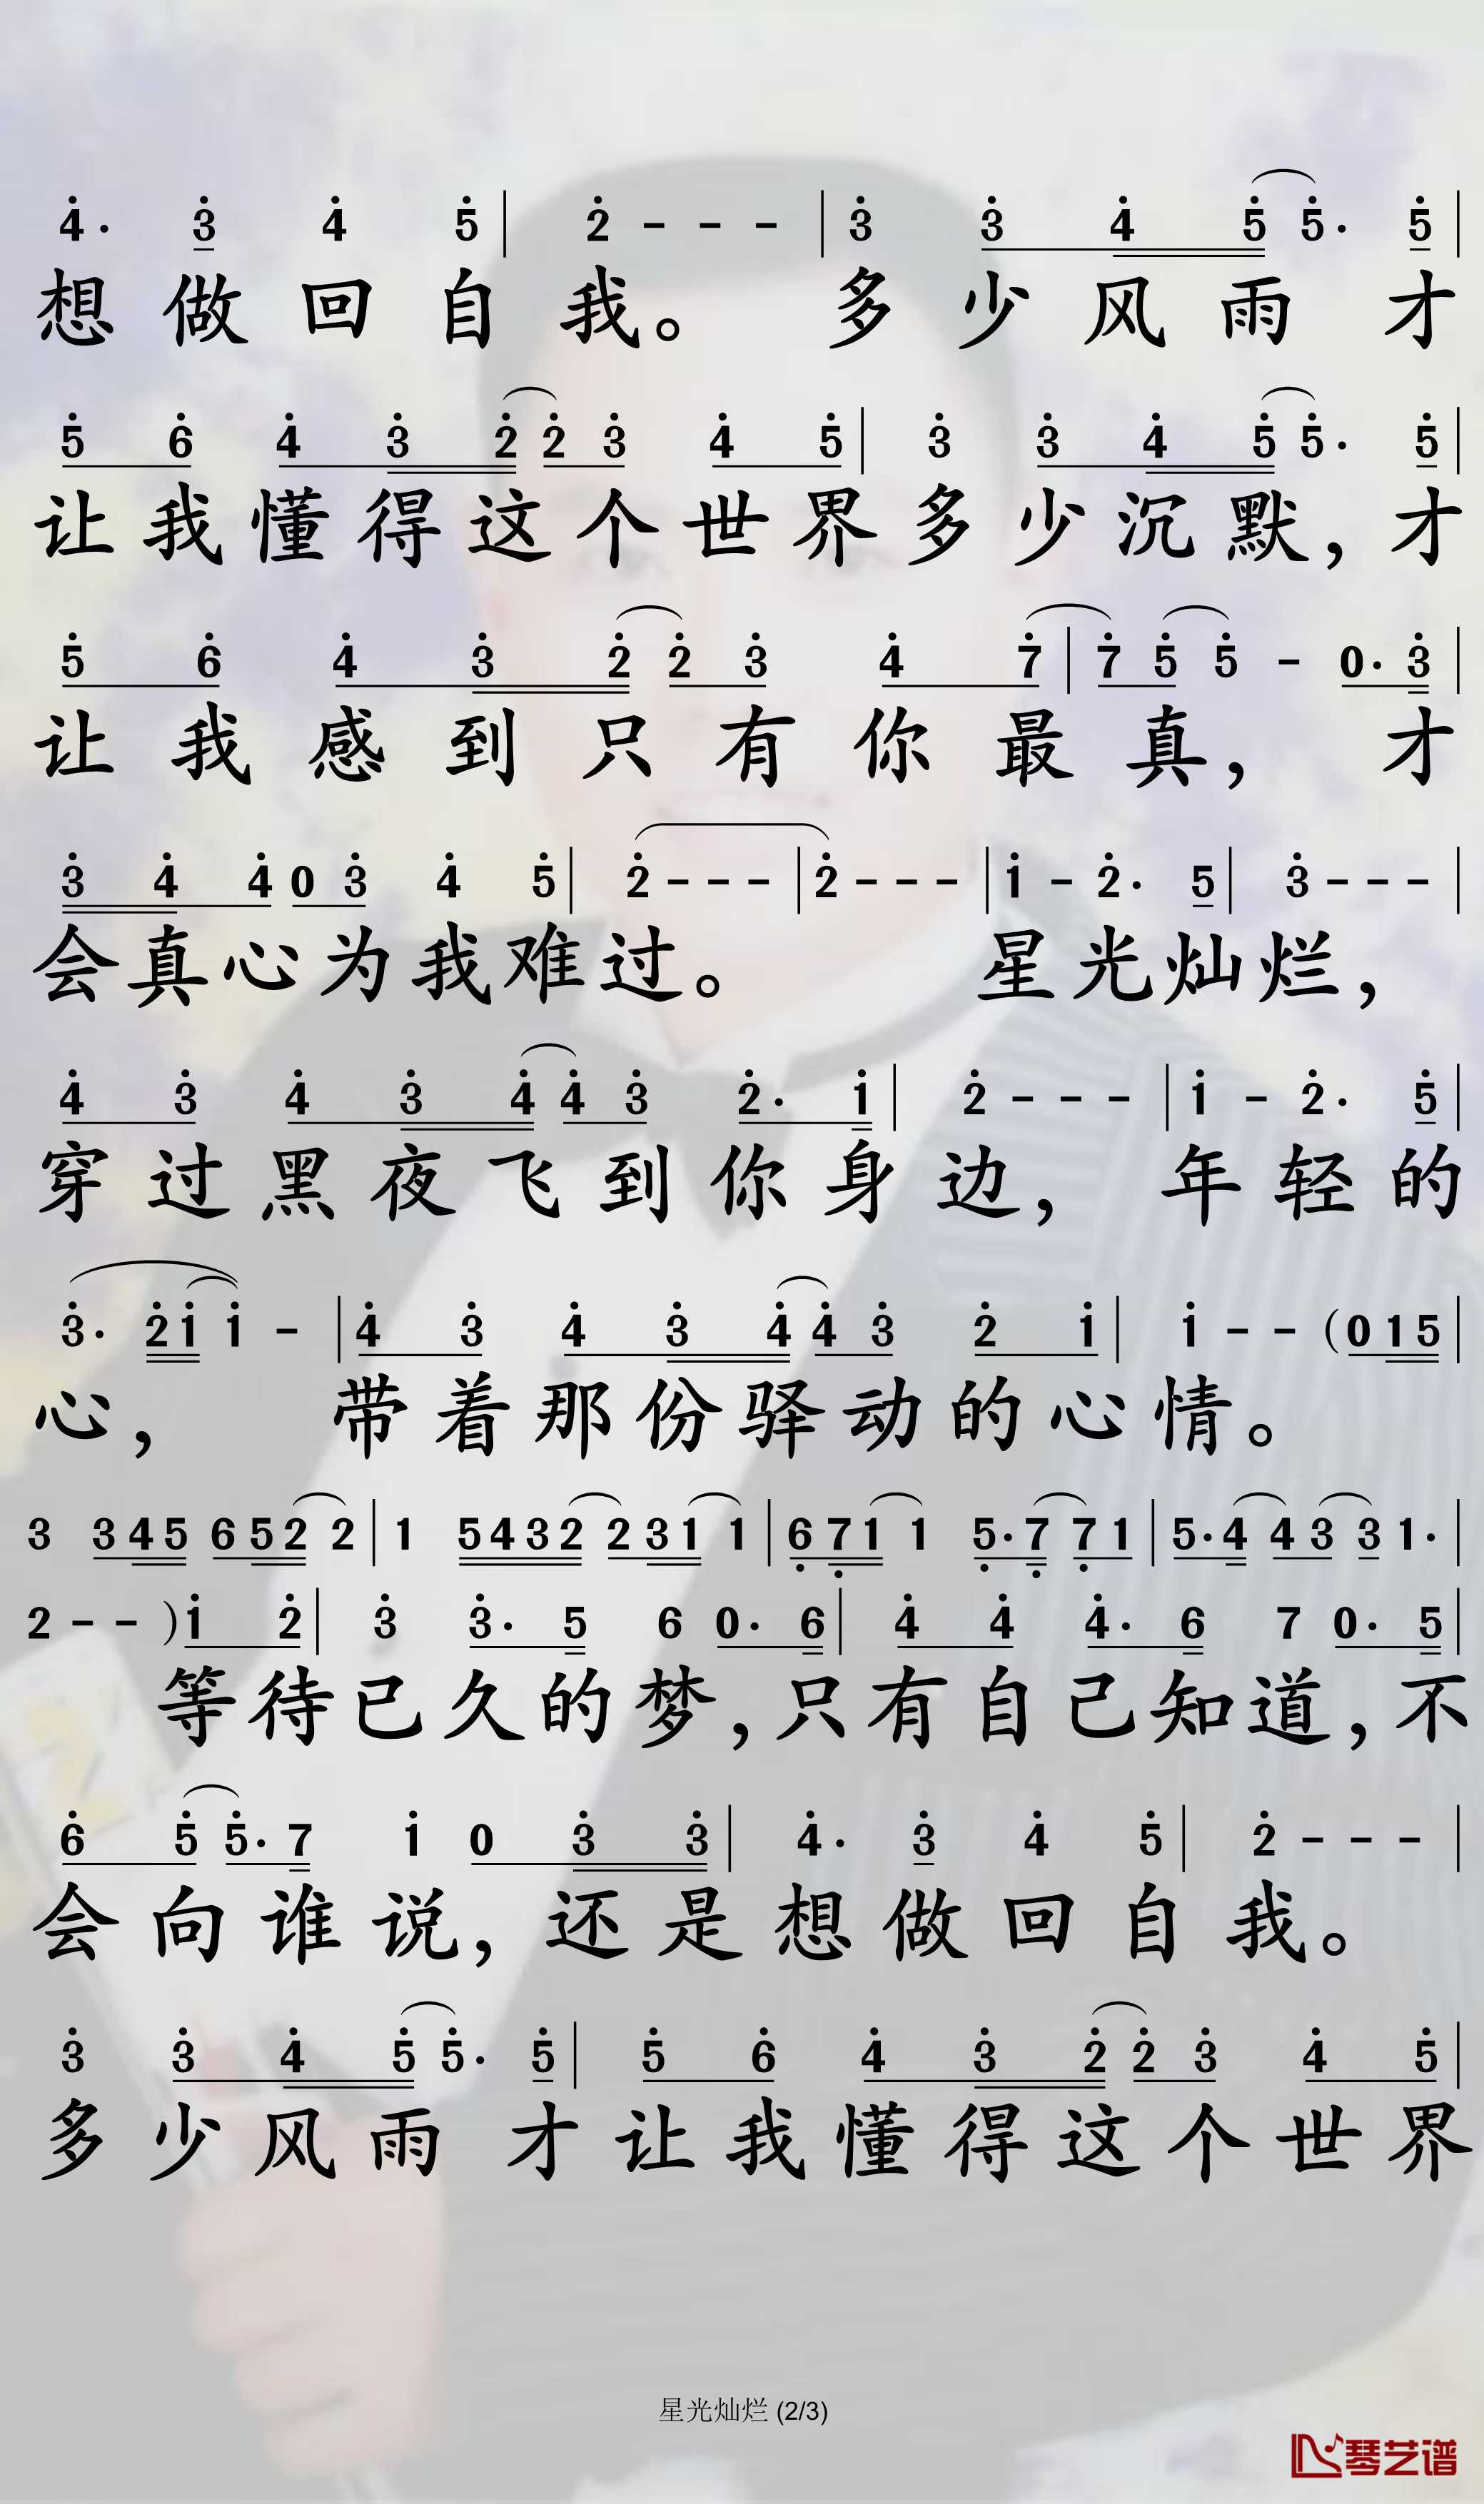 4· 3 4 5 | 2 - - - | 3 3 4 5 5· 5 |
想做回自我。多少风雨才
5 6 4 3 2 2 3 4 5 | 3 3 4 5 5· 5 |
让我懂得这个世界多少沉默，才
5 6 4 3 2 2 3 4 7 | 7 5 5 - 0· 3 |
让我感到只有你最真，才
3 4 4 0 3 4 5 | 2 - - - | 2 - - - | 1 - 2· 5 | 3 - - - |
会真心为我难过。星光灿烂，
4 3 4 3 4 4 3 2· 1 | 2 - - - | 1 - 2· 5 |
穿过黑夜飞到你身边，年轻的
3· 2 1 1 - | 4 3 4 3 4 4 3 2 1 | 1 - - (0 1 5 |
心，带着那份驿动的心情。
3 3 4 5 6 5 2 2 | 1 5 4 3 2 2 3 1 1 | 6 7 1 1 5· 7 7 1 | 5· 4 4 3 3 1· |
2 - - ) 1 2 | 3 3· 5 6 0· 6 | 4 4 4· 6 7 0· 5 |
等待已久的梦，只有自己知道，不
6 5 5· 7 1 0 3 3 | 4· 3 4 5 | 2 - - - |
会向谁说，还是想做回自我。
3 3 4 5 5· 5 | 5 6 4 3 2 2 3 4 5 |
多少风雨才让我懂得这个世界
星光灿烂 (2/3)
琴艺谱